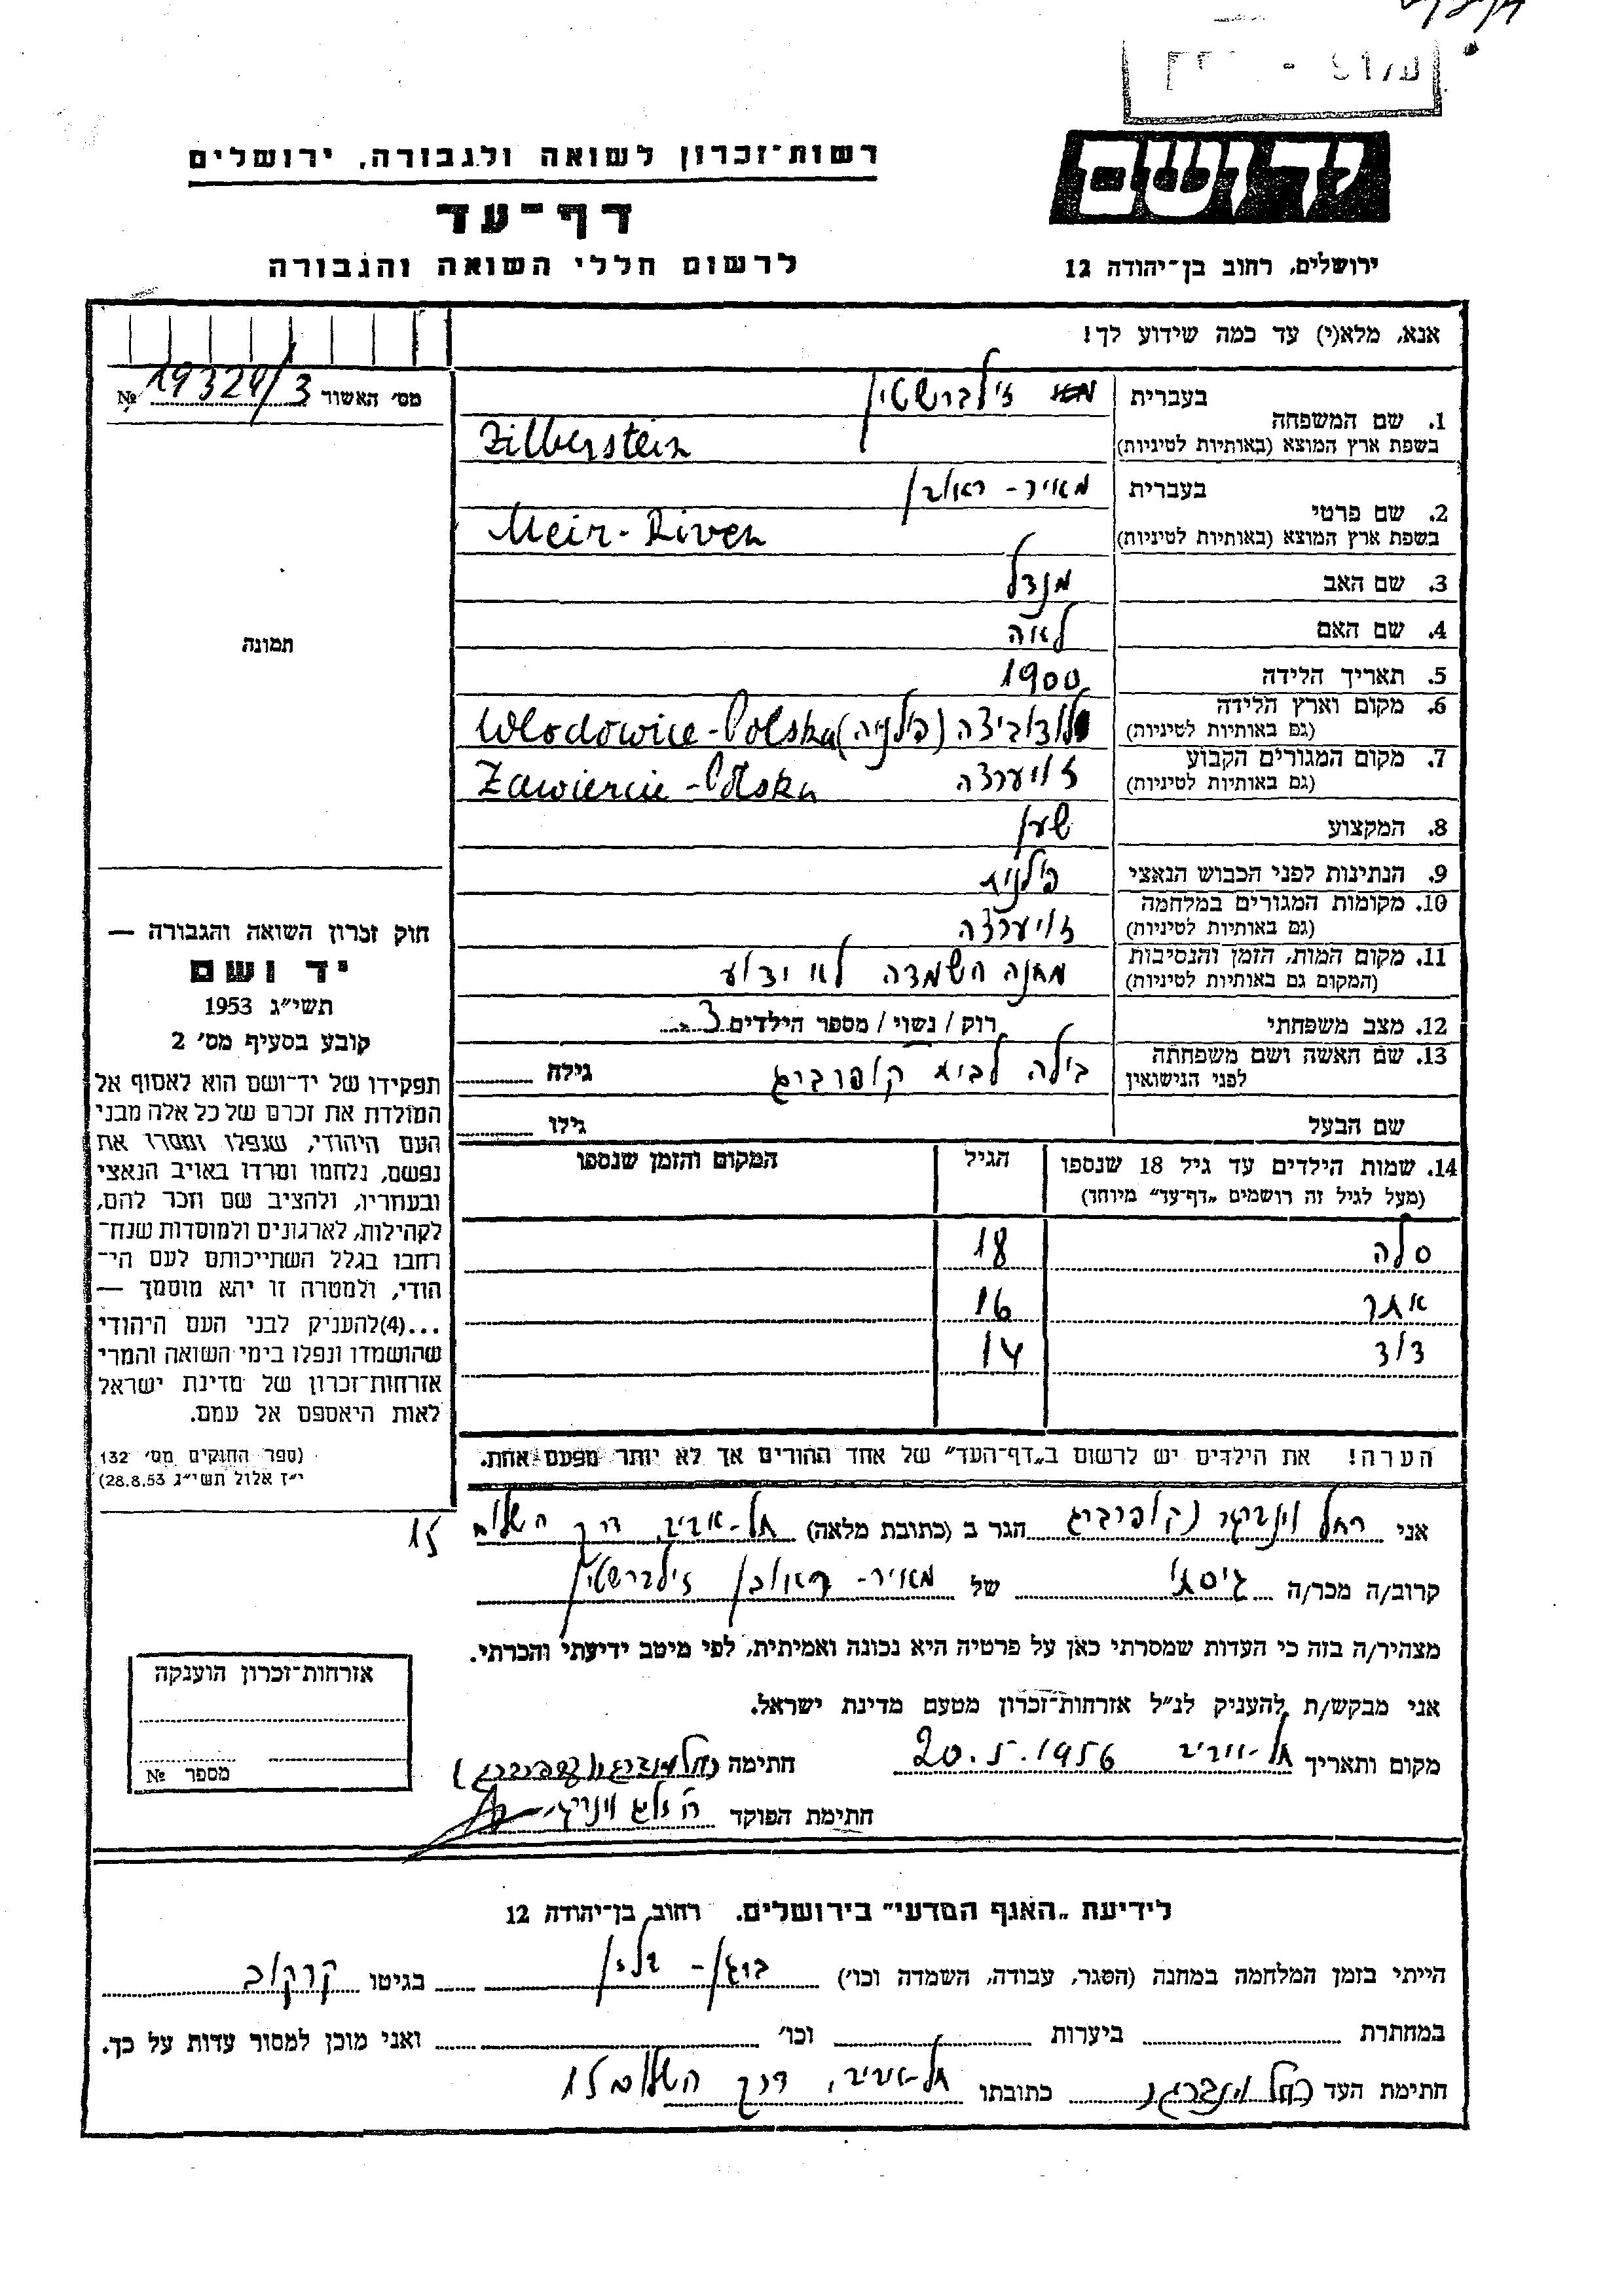 יד ושם
ירושלים, רחוב בן־יהודה 12
רשות־זכרון לשואה ולגבורה, ירושלים
דף־עד
לרשום חללי השואה והגבורה
אנא, מלא(י) עד כמה שידוע לך!
מס׳ האשור 19324/3 №
1. שם המשפחה
בעברית זילברשטיין
בשפת ארץ המוצא (באותיות לטיניות) Zilberstein
2. שם פרטי
בעברית מאיר - ראובן
בשפת ארץ המוצא (באותיות לטיניות) Meir - Riven
3. שם האב מנדל
4. שם האם לאה
5. תאריך הלידה 1900
6. מקום וארץ הלידה
(גם באותיות לטיניות) ולודוביצה (פולניה) Wlodowice - Polska
7. מקום המגורים הקבוע
(גם באותיות לטיניות) זויערצה Zawiercie - Polska
8. המקצוע שען
9. הנתינות לפני הכבוש הנאצי פולנית
10. מקומות המגורים במלחמה
(גם באותיות לטיניות) זויערצה
11. מקום המות, הזמן והנסיבות
(המקום גם באותיות לטיניות) מחנה השמדה לא ידוע
12. מצב משפחתי רוק / נשוי / מספר הילדים 3
13. שם האשה ושם משפחתה
לפני הנישואין בילה לבית קופרברג גילה
שם הבעל גילו
14. שמות הילדים עד גיל 18 שנספו
(מעל לגיל זה רושמים „דף־עד״ מיוחד)
הגיל
המקום והזמן שנספו
סלה 18
אתר 16
דוד 14
הערה! את הילדים יש לרשום ב„דף־העד״ של אחד ההורים אך לא יותר מפעם אחת.
תמונה
חוק זכרון השואה והגבורה —
יד ושם
תשי״ג 1953
קובע בסעיף מס׳ 2
תפקידו של יד־ושם הוא לאסוף אל
המולדת את זכרם של כל אלה מבני
העם היהודי, שנפלו ומסרו את
נפשם, נלחמו ומרדו באויב הנאצי
ובעוזריו, ולהציב שם וזכר להם,
לקהילות, לארגונים ולמוסדות שנח־
רחבו בגלל השתייכותם לעם הי־
הודי, ולמטרה זו יהא מוסמך —
...(4)להעניק לבני העם היהודי
שהושמדו ונפלו בימי השואה והמרי
אזרחות־זכרון של מדינת ישראל
לאות היאספם אל עמם.
(ספר החוקים מס׳ 132
י״ז אלול תשי״ג 28.8.53)
אני רחל (קופרברג הגר ב (כתובת מלאה) תל-אביב דרך השלום 15
קרוב/ה מכר/ה גיסתו של מאיר - ראובן זילברשטיין
מצהיר/ה בזה כי העדות שמסרתי כאן על פרטיה היא נכונה ואמיתית, לפי מיטב ידיעתי והכרתי.
אני מבקש/ת להעניק לנ״ל אזרחות־זכרון מטעם מדינת ישראל.
מקום ותאריך תל-אביב 20.5.1956 חתימה
חתימת הפוקד
אזרחות־זכרון הוענקה
מספר №
לידיעת „האגף המדעי״ בירושלים. רחוב בן־יהודה 12
הייתי בזמן המלחמה במחנה (הסגר, עבודה, השמדה וכו׳) ברגן - בלזן בגיטו קרקוב
במחתרת ביערות וכו׳ ואני מוכן למסור עדות על כך.
חתימת העד רחל וינברגר כתובתו תל-אביב, דרך השלום 15